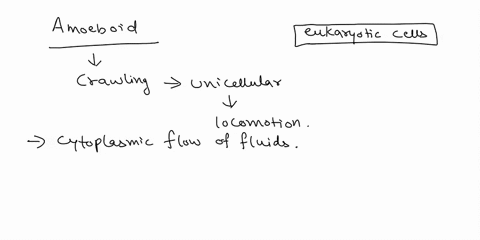 Amoeboid
eukaryotic cells
↓
Crawling → unicellular
↓
locomotion.
→ cytoplasmic flow of fluids.